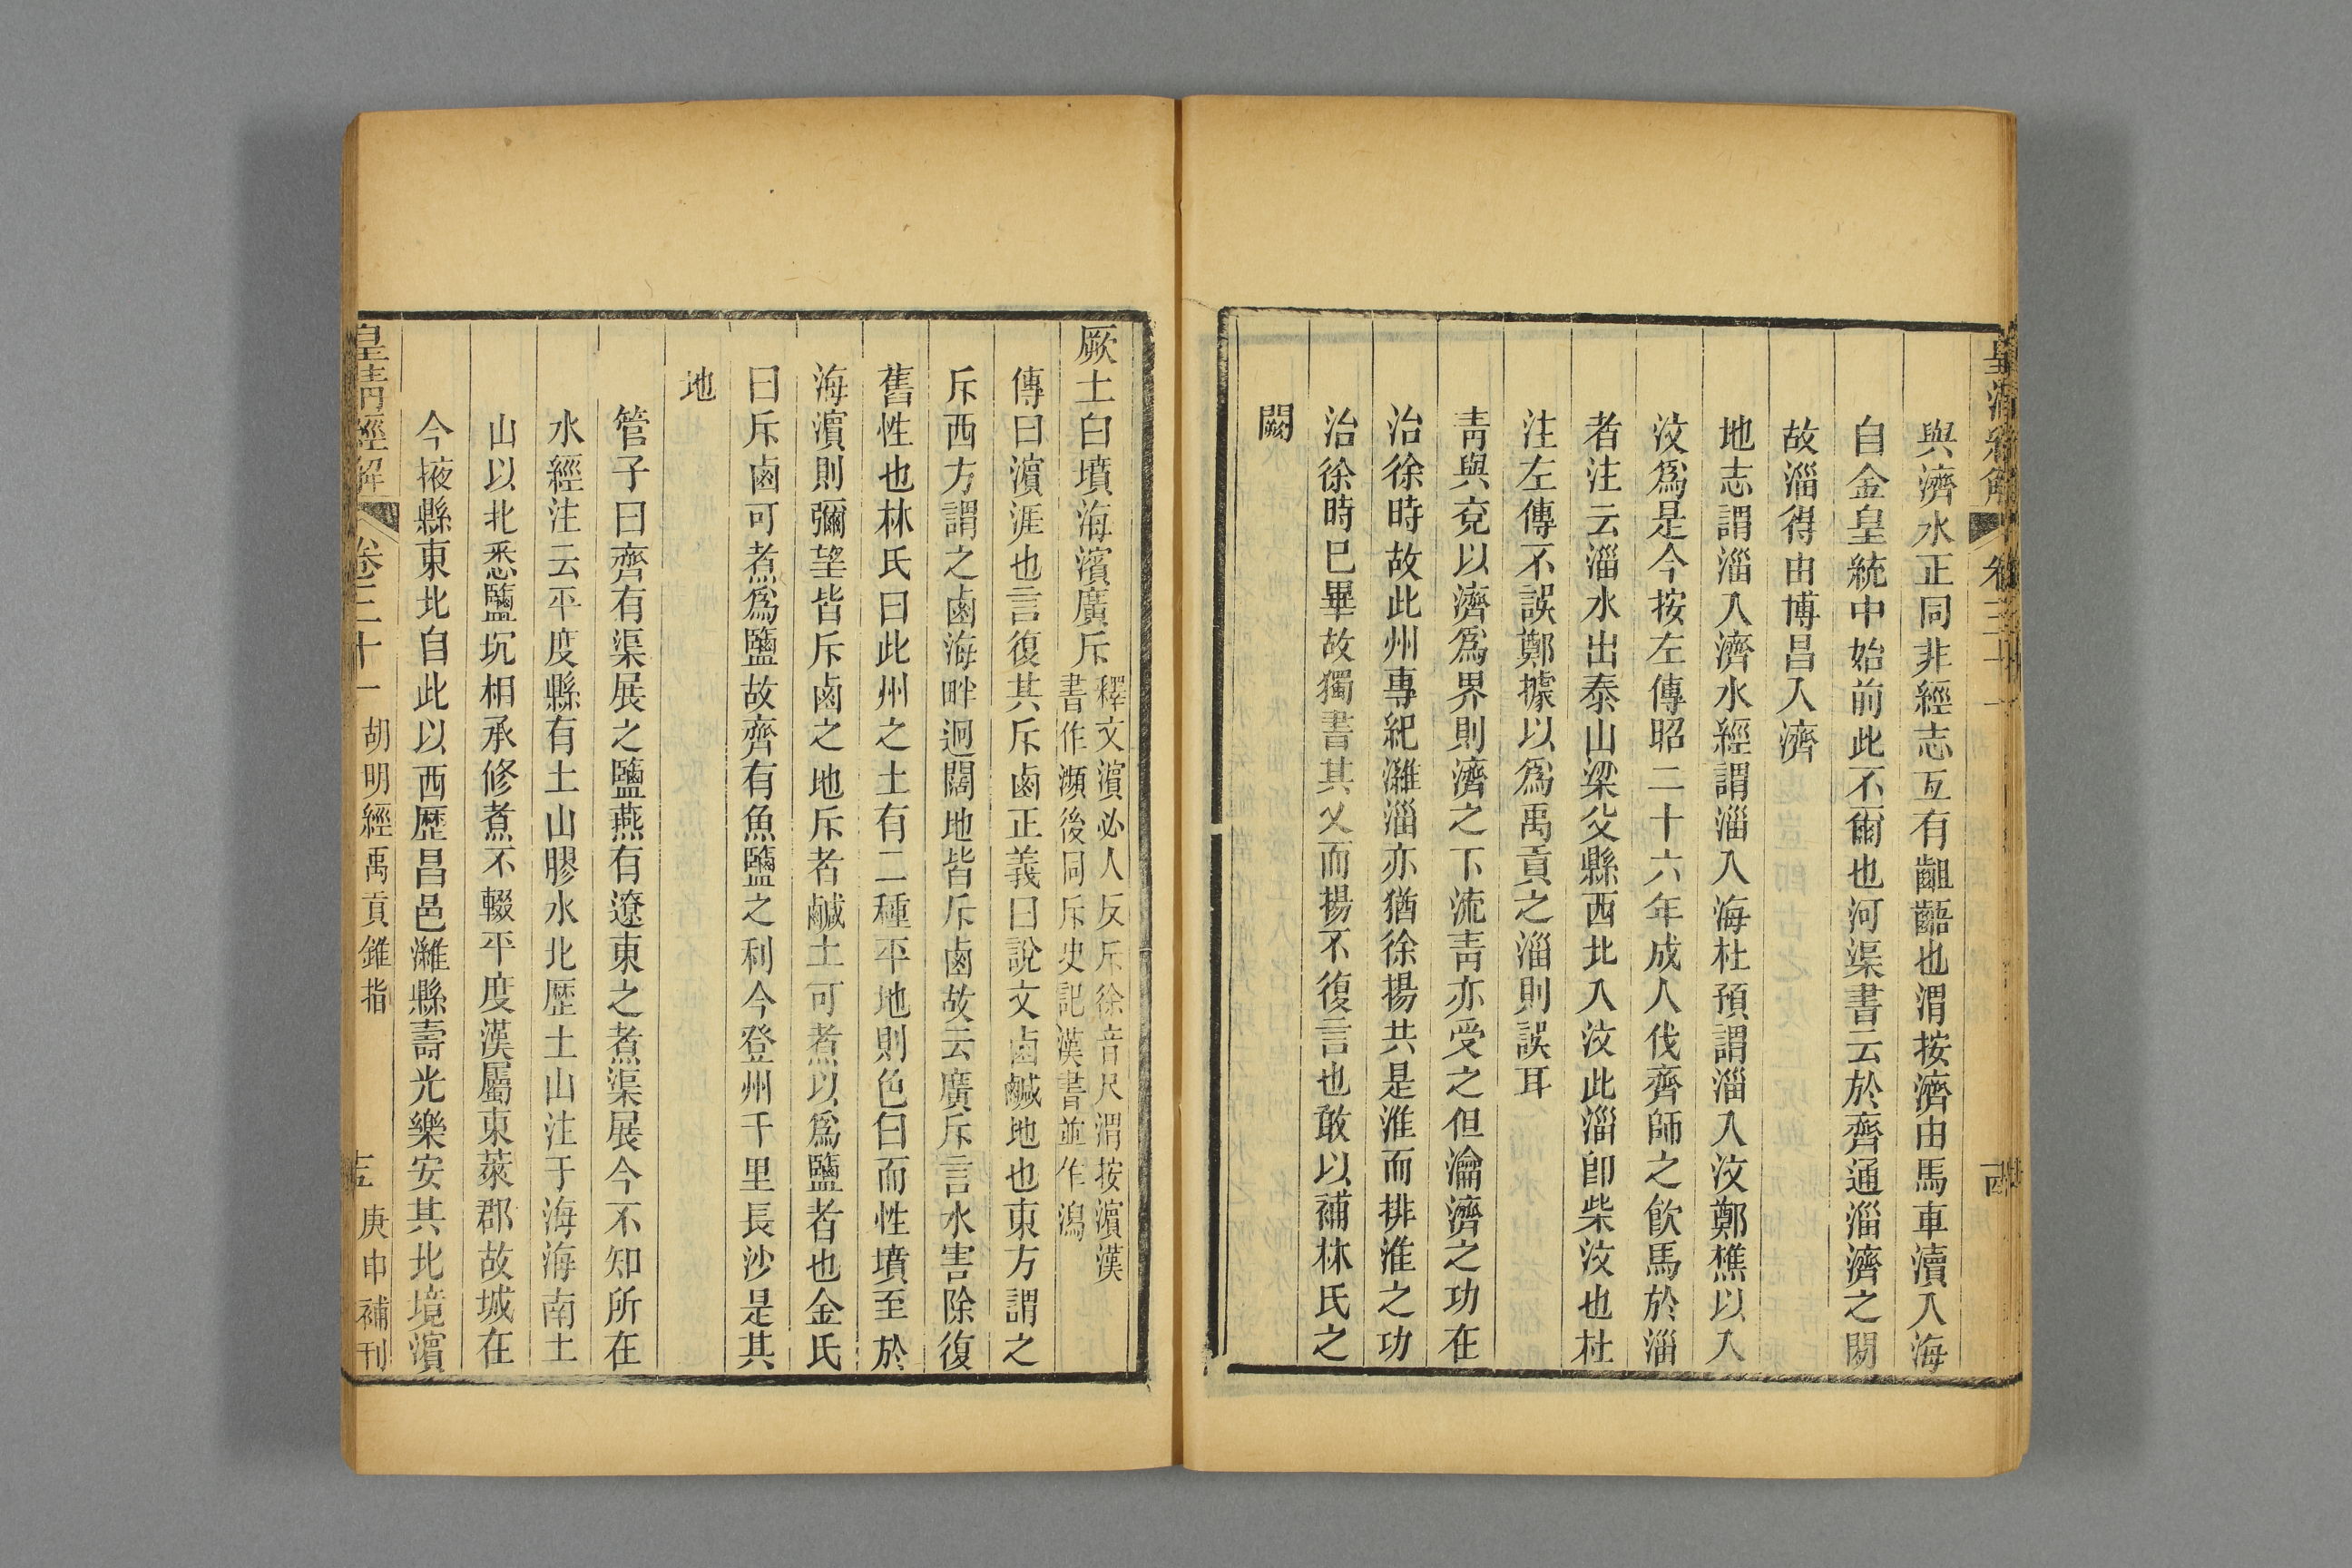 皇淸經解 卷三十一 十四
與濟水正同非經志互有齟齬也渭按濟由馬車瀆入海
自金皇統中始前此不爾也河渠書云於齊通淄濟之閒
故淄得由博昌入濟
地志謂淄入濟水經謂淄入海杜預謂淄入汶鄭樵以入
汶爲是今按左傳昭二十六年成人伐齊師之飮馬於淄
者注云淄水出泰山梁父縣西北入汶此淄卽柴汶也杜
注左傳不誤鄭據以爲禹貢之淄則誤耳
靑與兗以濟爲界則濟之下流靑亦受之但瀹濟之功在
治徐時故此州專紀濰淄亦猶徐揚共是淮而排淮之功
治徐時已畢故獨書其乂而揚不復言也敢以補林氏之
闕
厥土白墳海濱廣斥
釋文濱必人反斥徐音尺渭按濱漢
書作瀕後同斥史記漢書並作潟
傳曰濱涯也言復其斥鹵正義曰說文鹵鹹地也東方謂之
斥西方謂之鹵海畔迥闊地皆斥鹵故云廣斥言水害除復
舊性也林氏曰此州之土有二種平地則色白而性墳至於
海濱則彌望皆斥鹵之地斥者鹹土可煮以爲鹽者也金氏
曰斥鹵可煮爲鹽故齊有魚鹽之利今登州千里長沙是其
地
管子曰齊有渠展之鹽燕有遼東之煮渠展今不知所在
水經注云平度縣有土山膠水北歷土山注于海海南土
山以北悉鹽坑相承修煮不輟平度漢屬東萊郡故城在
今掖縣東北自此以西歷昌邑濰縣壽光樂安其北境濱
皇淸經解 卷三十一 胡明經禹貢錐指 十五 庚申補刊